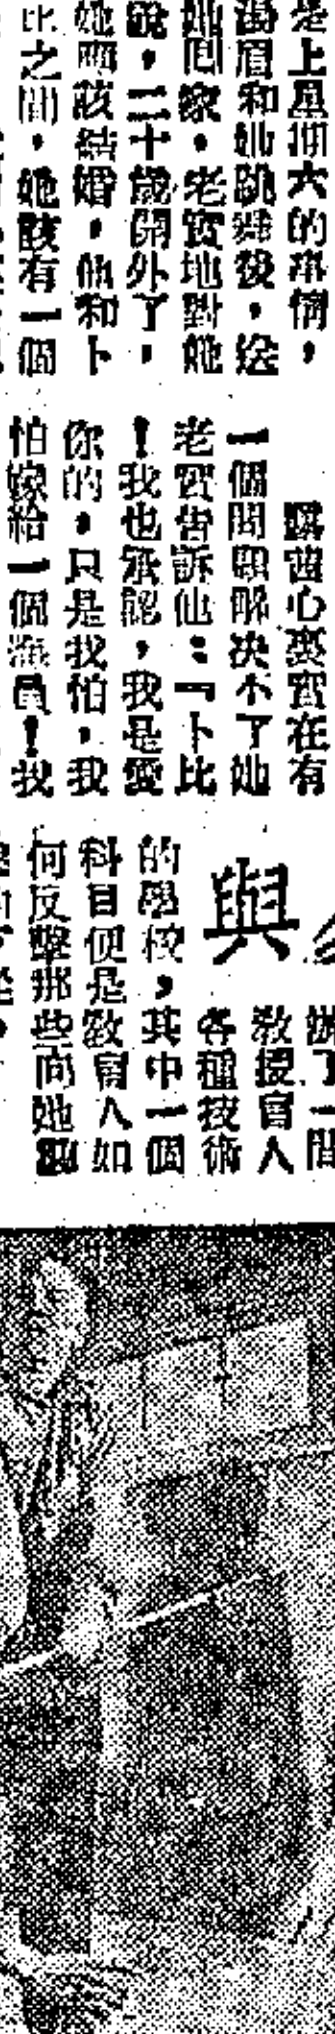 是上星期六的事情，
湯眉和她跳舞後，送
她回家，老實地對她
說，二十歲開外了，
她們該結婚，他和卜
比之間，她該有一個
心裏實在有
一個問題解決不了她
老實告訴他：『卜比
！我也承認，我是愛
你的，只是我怕，我
怕嫁給一個海員！我
與
辦了一間
教授盲人
各種技術
的學校，其中一個
科目便是教盲人如
何反擊那些向她